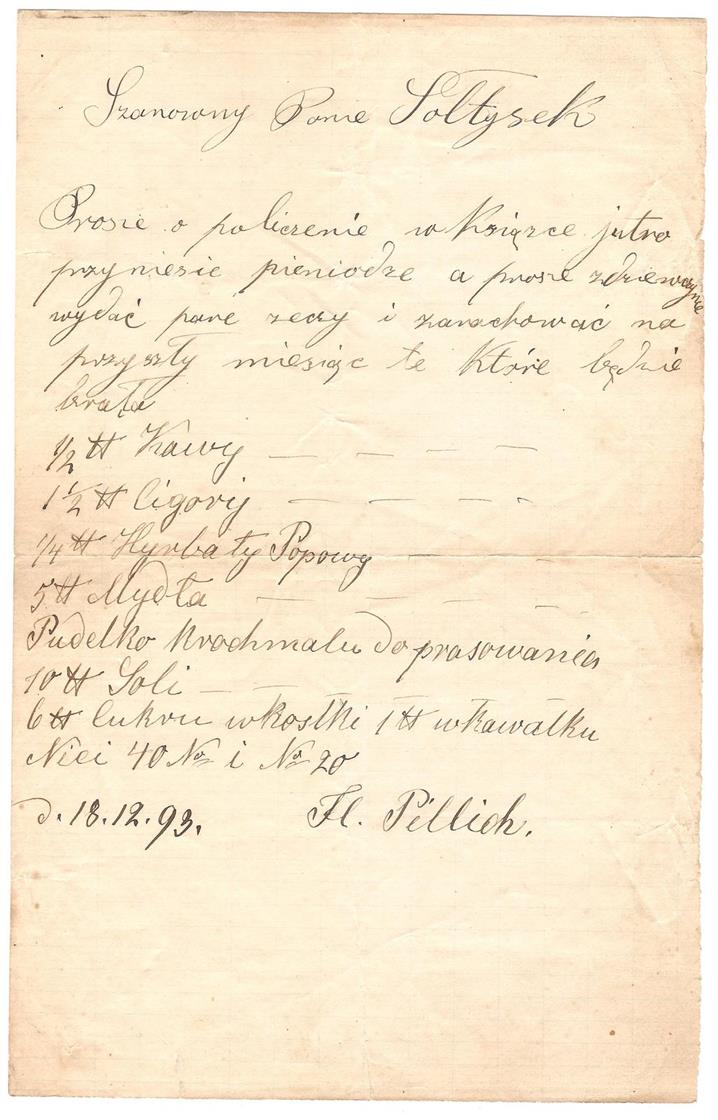 Szanowny Panie Sołtysek
Prosze o policzenie w Książce jutro
przyniesie pieniodze a prosze zdziewczynie
wydać paré zeczy i zarachować na
przyszły miesiąc te które będzie
brała
1/2 ℔ Kawy — — — —
1 1/2 ℔ Cigorij — — — -
1/4 ℔ Hyrbaty Popowy — —
5 ℔ Mydła — — — —
Pudelko Krochmalu do prasowania
10 ℔ Soli — — — — —
6 ℔ Cukru wkostki 1 ℔ wkawałku
Nici 40 No i No 20
d. 18.12.93. Fl. Pillich.